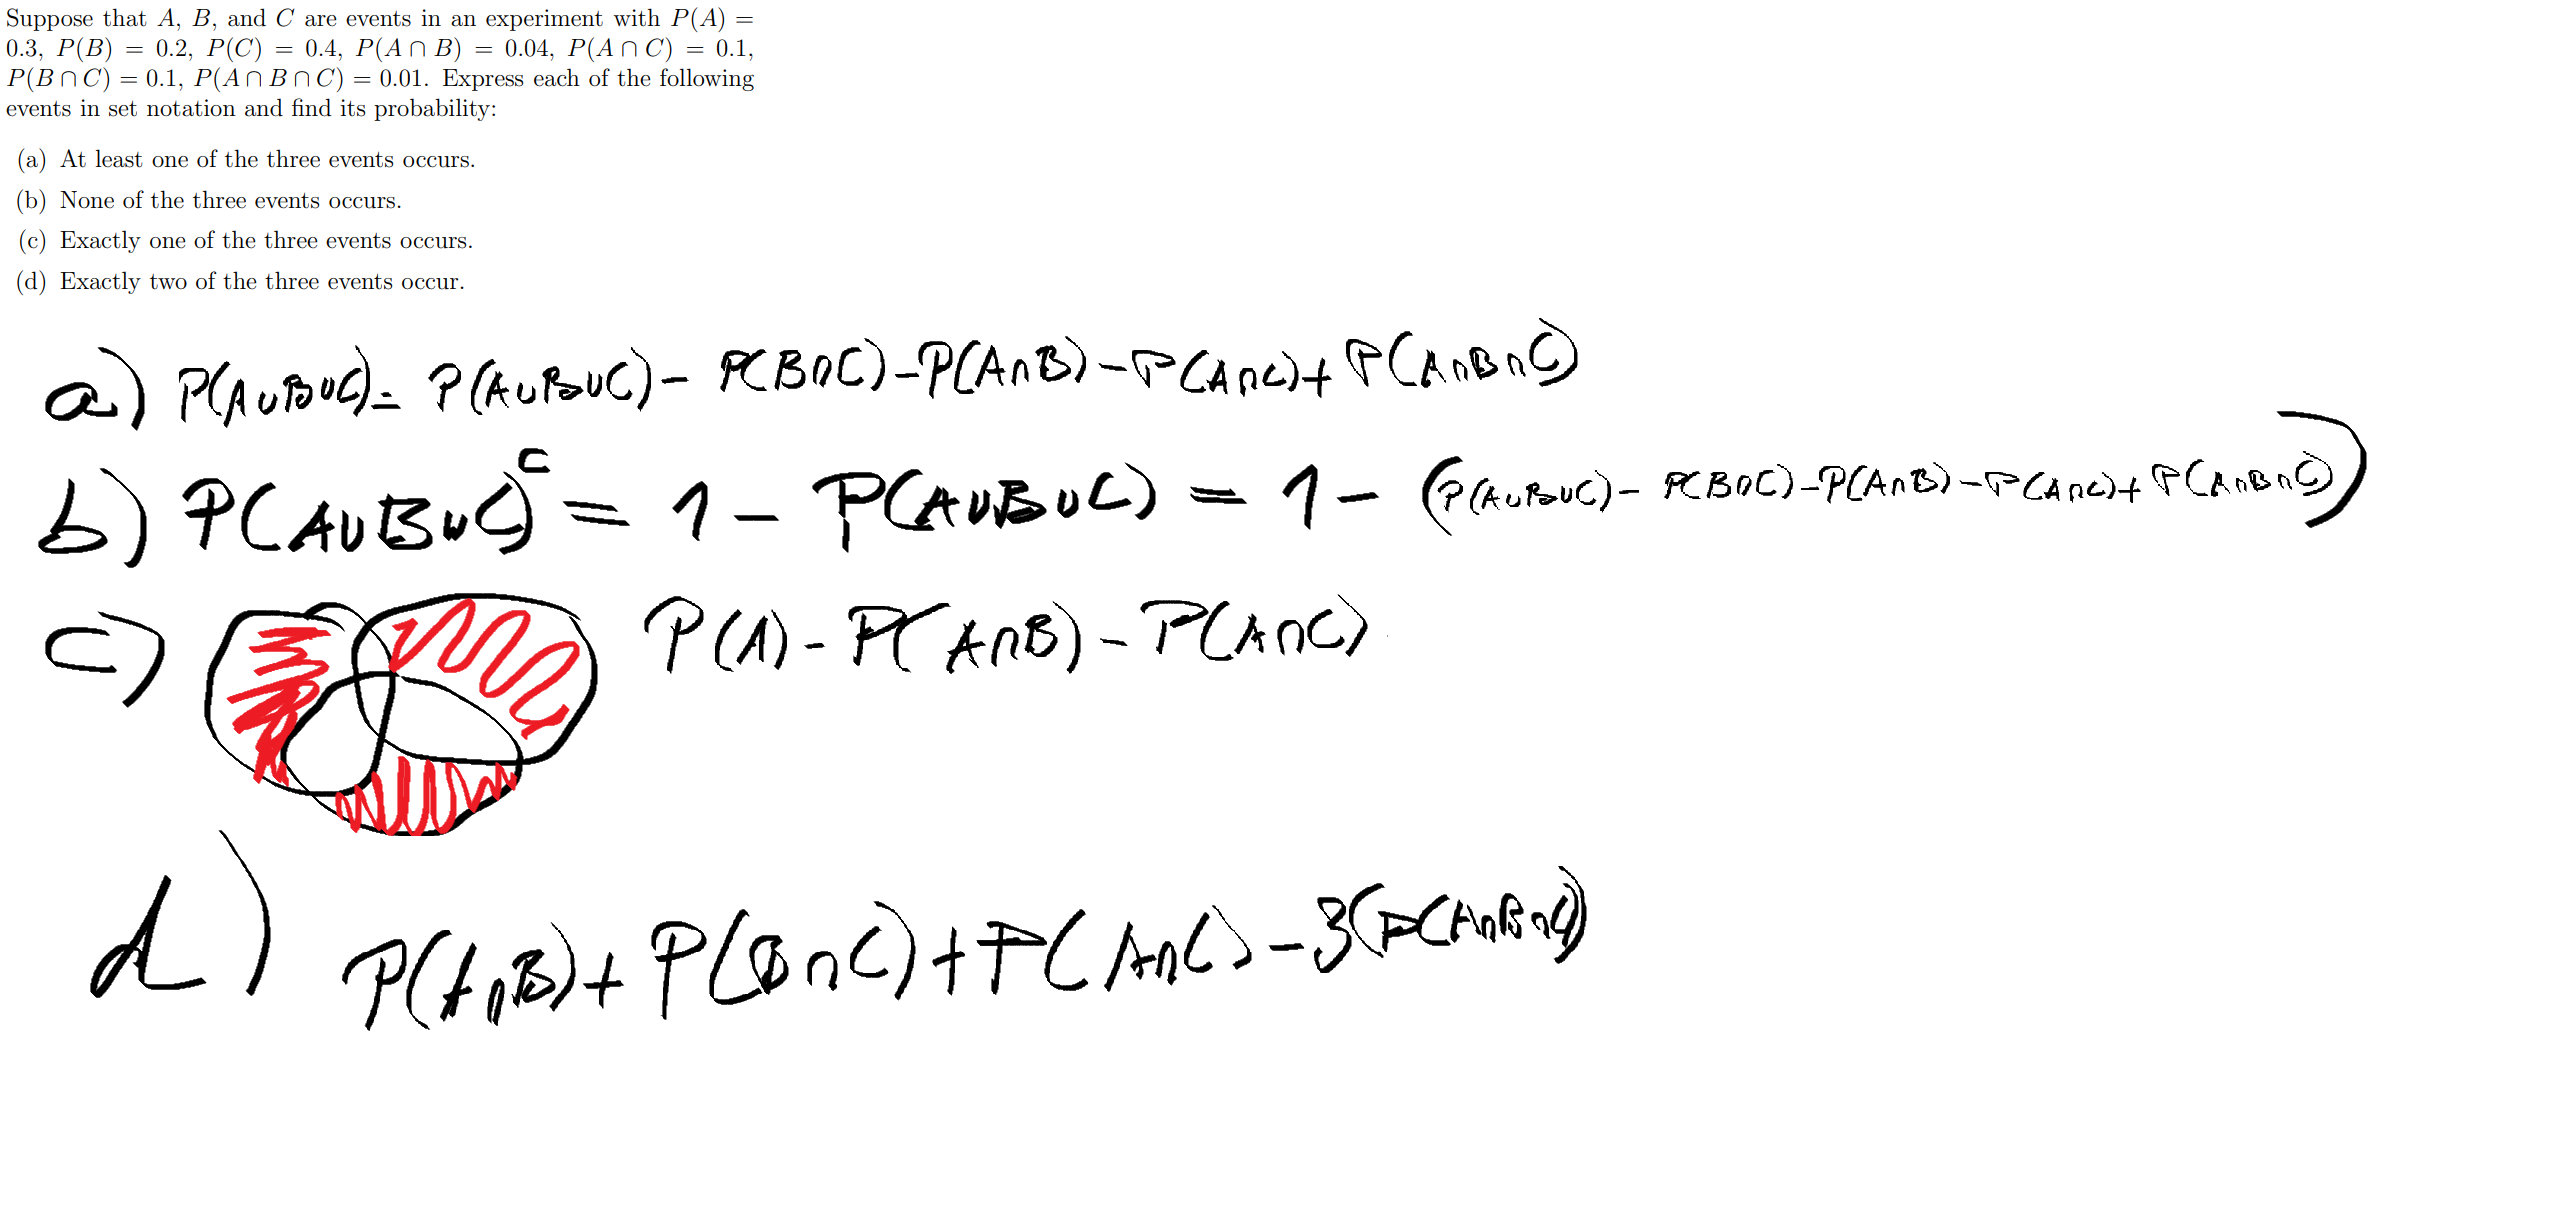 Suppose that A, B, and C are events in an experiment with P(A) =
0.3, P(B) = 0.2, P(C) = 0.4, P(A ∩ B) = 0.04, P(A ∩ C) = 0.1,
P(B ∩ C) = 0.1, P(A ∩ B ∩ C) = 0.01. Express each of the following
events in set notation and find its probability:
(a) At least one of the three events occurs.
(b) None of the three events occurs.
(c) Exactly one of the three events occurs.
(d) Exactly two of the three events occur.
a) P(A∪B∪C) = P(A∪B∪C) - P(B∩C) - P(A∩B) - P(A∩C) + P(A∩B∩C)
b) P(A∪B∪C)^c = 1 - P(A∪B∪C) = 1 - (P(A∪B∪C) - P(B∩C) - P(A∩B) - P(A∩C) + P(A∩B∩C))
c) P(A) - P(A∩B) - P(A∩C)
d) P(A∩B) + P(B∩C) + P(A∩C) - 3(P(A∩B∩C))